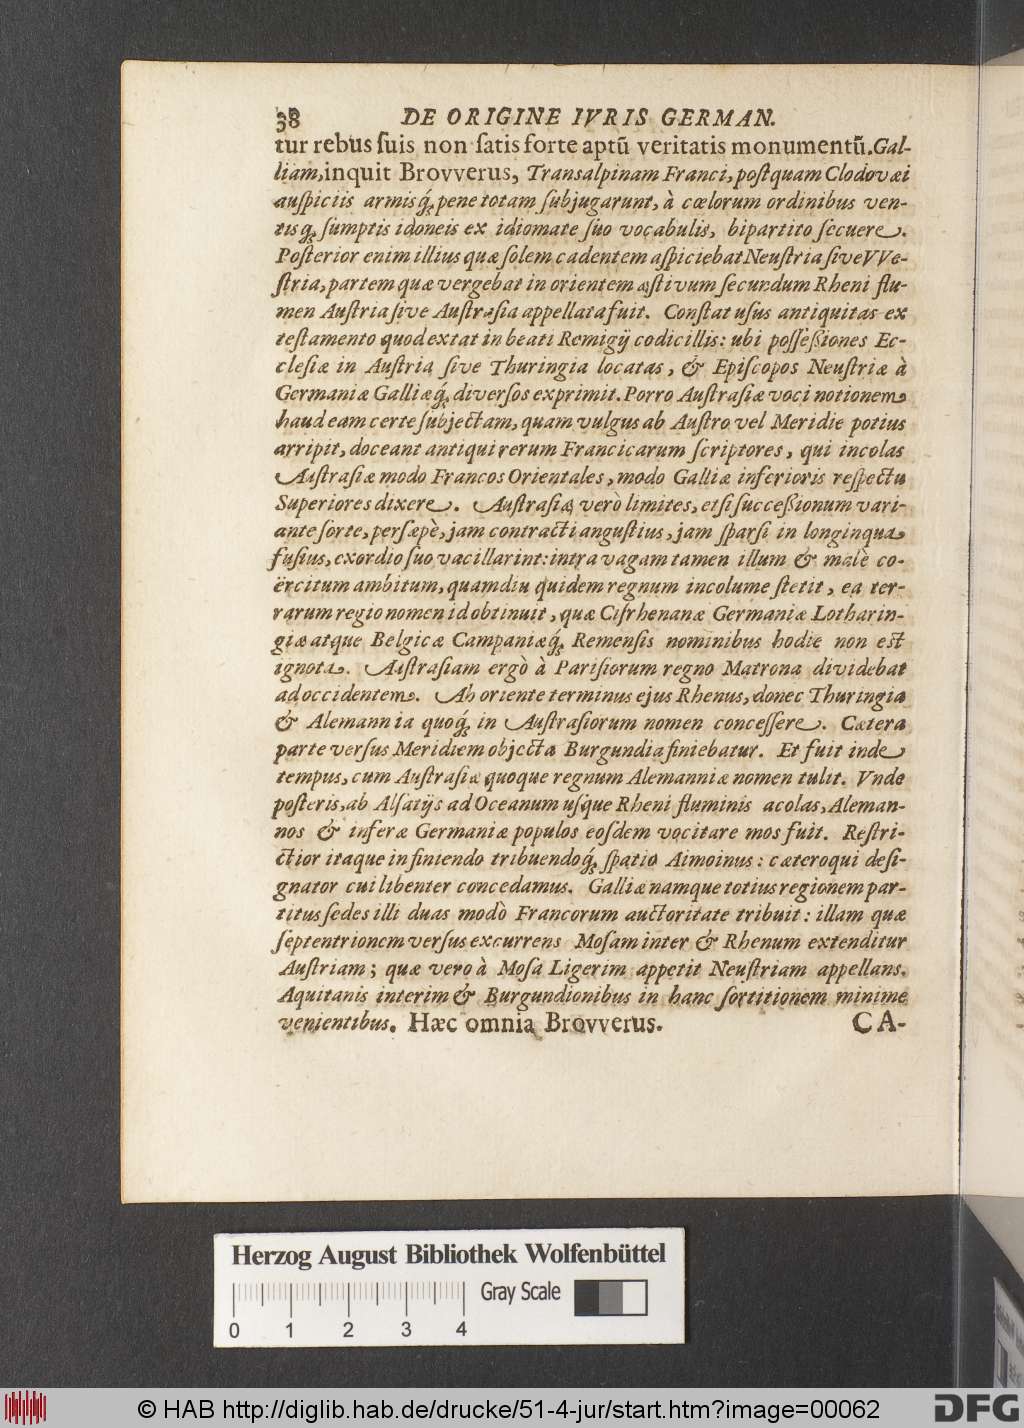 38 DE ORIGINE IVRIS GERMAN.
tur rebus ſuis non ſatis forte aptū veritatis monumentū. Gal-
liam, inquit Brovverus, Transalpinam Franci, poſtquam Clodovæi
auſpiciis armisq́ꝫ pene totam ſubjugarunt, à cœlorum ordinibus ven-
tisqꝫ ſumptis idoneis ex idiomate ſuo vocabulis, bipartito ſecuere.
Poſterior enim illius quæ ſolem cadentem aſpiciebat Neuſtria ſive VVe-
ſtria, partem quæ vergebat in orientem æſtivum ſecundum Rheni flu-
men Auſtria ſive Auſtraſia appellata fuit. Conſtat uſus antiquitas ex
teſtamento quod extat in beati Remigij codicillis: ubi poſſeßiones Ec-
cleſiæ in Auſtria ſive Thuringia locatas, & Epiſcopos Neuſtriæ à
Germaniæ Galliæq́ꝫ diverſos exprimit. Porro Auſtraſiæ voci notionem
haud eam certe ſubjectam, quam vulgus ab Auſtro vel Meridie potius
arripit, doceant antiqui rerum Francicarum ſcriptores, qui incolas
Auſtraſiæ modo Francos Orientales, modo Galliæ inferioris reſpectu
Superiores dixere. Auſtraſiæ verò limites, etſi ſucceßionum vari-
ante ſorte, perſæpè, jam contracti anguſtius, jam ſparſi in longinqua
fuſius, exordio ſuo vacillarint: intra vagam tamen illum & malè co-
ërcitum ambitum, quamdiu quidem regnum incolume ſtetit, ea ter-
rarum regio nomen id obtinuit, quæ Ciſrhenanæ Germaniæ Lotharin-
giæ atque Belgicæ Campaniæq́ꝫ Remenſis nominibus hodie non eſt
ignota. Auſtraſiam ergò à Pariſiorum regno Matrona dividebat
ad occidentem. Ab oriente terminus ejus Rhenus, donec Thuringia
& Alemannia quoq́ꝫ in Auſtraſiorum nomen conceſſere. Cætera
parte verſus Meridiem objecta Burgundia finiebatur. Et fuit inde
tempus, cum Auſtraſiæ quoque regnum Alemanniæ nomen tulit. Vnde
poſteris, ab Alſatijs ad Oceanum uſque Rheni fluminis acolas, Aleman-
nos & inferæ Germaniæ populos eoſdem vocitare mos fuit. Reſtri-
ctior itaque in finiendo tribuendoq́ꝫ ſpatio Aimoinus: cæteroqui deſi-
gnator cui libenter concedamus. Galliæ namque totius regionem par-
titus ſedes illi duas modò Francorum auctoritate tribuit: illam quæ
ſeptentrionem verſus excurrens Moſam inter & Rhenum extenditur
Auſtriam; quæ vero à Moſa Ligerim appetit Neuſtriam appellans.
Aquitanis interim & Burgundionibus in hanc ſortitionem minime
venientibus. Hæc omnia Brovverus. CA-
Herzog August Bibliothek Wolfenbüttel
Gray Scale
0 1 2 3 4
© HAB http://diglib.hab.de/drucke/51-4-jur/start.htm?image=00062
DFG